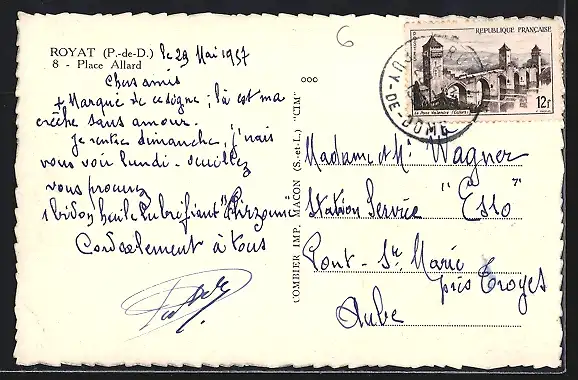 ROYAT (P.-de-D.) le 29 Mai 1957
8 - Place Allard
Chers amis
+ Marque de cedigne ; là est ma
crèche sans amour.
Je rentre dimanche, j'irais
vous voir lundi - veuillez
vous procurer
1 bidon huile Lubrifiant
Cordialement à tous
COMBIER IMP. MACON (S.-et-L.) "CIM"
6
REPUBLIQUE FRANÇAISE
Le Pont Valentré (Cahors)
12f
PUY-DE-DOME
Madame et Mr Wagner
Station Service "Esso"
Pont - Ste Marie
près Troyes
Aube